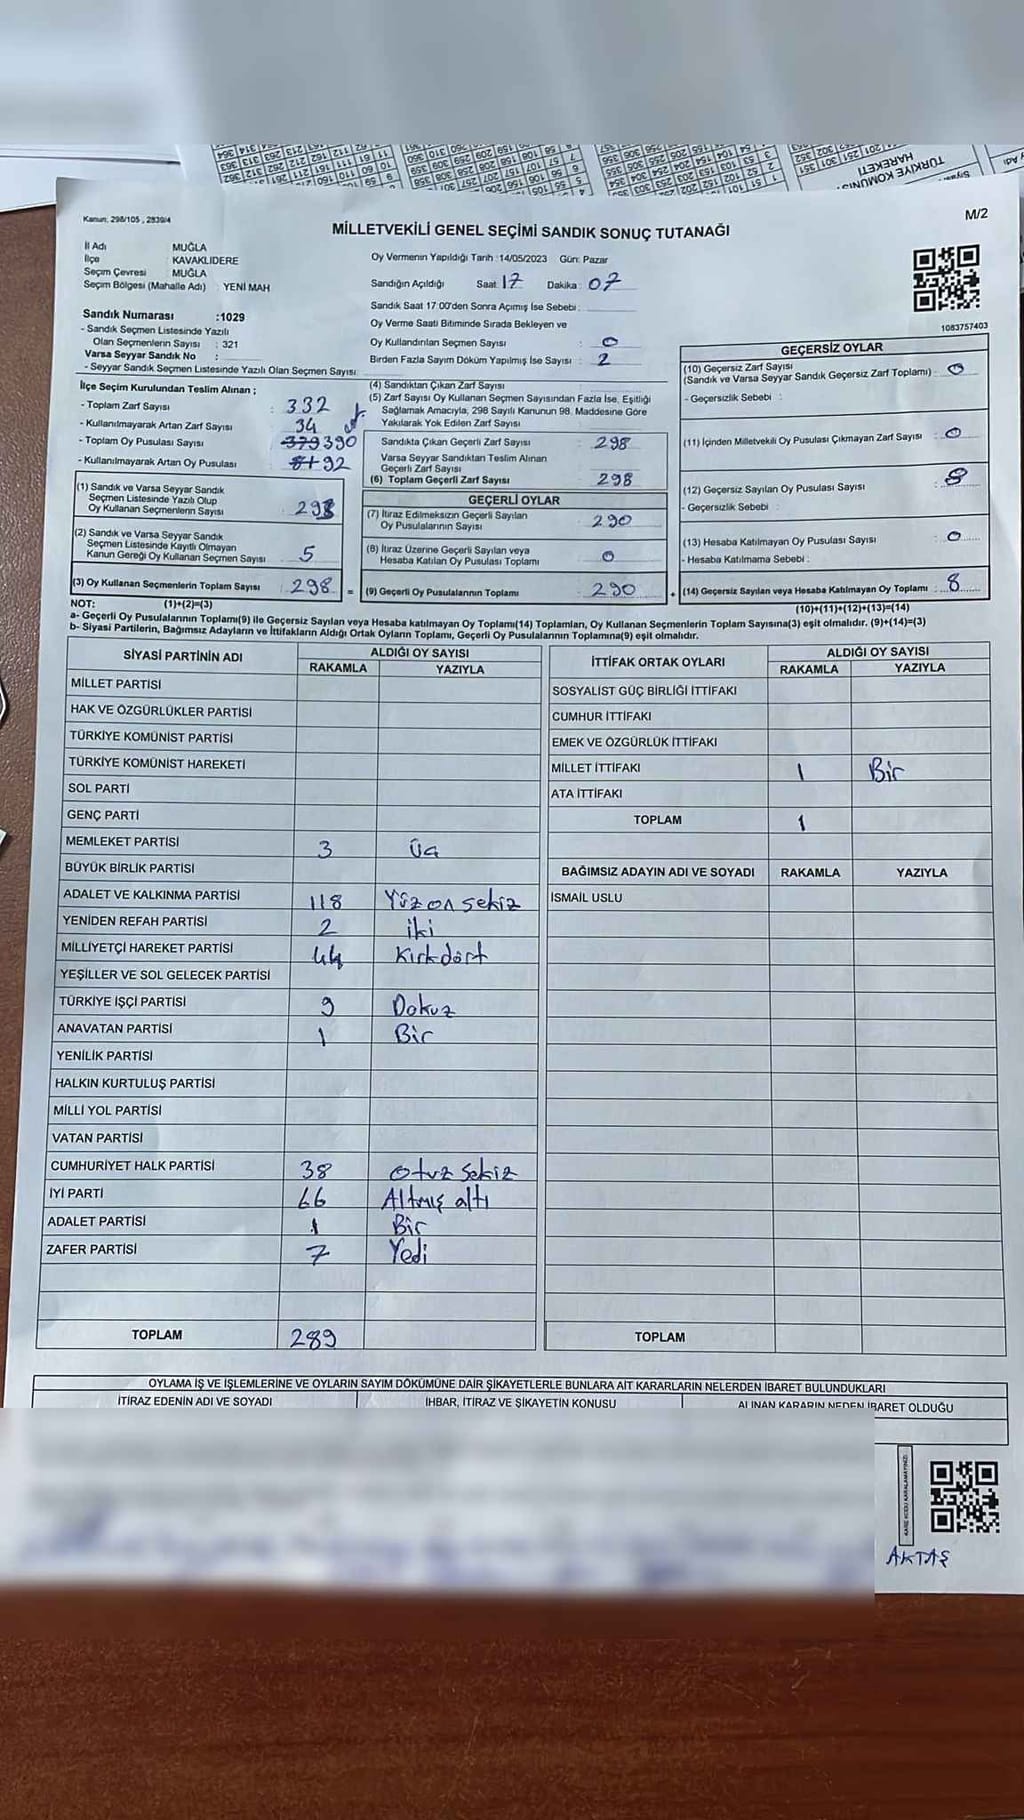 Kanun: 298/105 , 2839/4
M/2
MİLLETVEKİLİ GENEL SEÇİMİ SANDIK SONUÇ TUTANAĞI
İl Adı MUĞLA
İlçe KAVAKLIDERE
Seçim Çevresi MUĞLA
Seçim Bölgesi (Mahalle Adı) : YENİ MAH
Sandık Numarası :1029
- Sandık Seçmen Listesinde Yazılı
Olan Seçmenlerin Sayısı : 321
Varsa Seyyar Sandık No :
- Seyyar Sandık Seçmen Listesinde Yazılı Olan Seçmen Sayısı
Oy Vermenin Yapıldığı Tarih :14/05/2023 Gün: Pazar
Sandığın Açıldığı Saat: 17 Dakika: 07
Sandık Saat 17:00'den Sonra Açılmış İse Sebebi :
Oy Verme Saati Bitiminde Sırada Bekleyen ve
Oy Kullandırılan Seçmen Sayısı : 0
Birden Fazla Sayım Döküm Yapılmış İse Sayısı : 2
1083757403
İlçe Seçim Kurulundan Teslim Alınan ;
- Toplam Zarf Sayısı : 332
- Kullanılmayarak Artan Zarf Sayısı : 34
- Toplam Oy Pusulası Sayısı : 379 390
- Kullanılmayarak Artan Oy Pusulası : 92
(1) Sandık ve Varsa Seyyar Sandık
Seçmen Listesinde Yazılı Olup
Oy Kullanan Seçmenlerin Sayısı : 293
(2) Sandık ve Varsa Seyyar Sandık
Seçmen Listesinde Kayıtlı Olmayan
Kanun Gereği Oy Kullanan Seçmen Sayısı : 5
(3) Oy Kullanan Seçmenlerin Toplam Sayısı : 298 =
(1)+(2)=(3)
(4) Sandıktan Çıkan Zarf Sayısı
(5) Zarf Sayısı Oy Kullanan Seçmen Sayısından Fazla İse, Eşitliği
Sağlamak Amacıyla, 298 Sayılı Kanunun 98. Maddesine Göre
Yakılarak Yok Edilen Zarf Sayısı
Sandıkta Çıkan Geçerli Zarf Sayısı : 298
Varsa Seyyar Sandıktan Teslim Alınan
Geçerli Zarf Sayısı
(6) Toplam Geçerli Zarf Sayısı : 298
GEÇERLİ OYLAR
(7) İtiraz Edilmeksizin Geçerli Sayılan
Oy Pusulalarının Sayısı : 290
(8) İtiraz Üzerine Geçerli Sayılan veya
Hesaba Katılan Oy Pusulası Toplamı : 0
(9) Geçerli Oy Pusulalarının Toplamı : 290 +
GEÇERSİZ OYLAR
(10) Geçersiz Zarf Sayısı
(Sandık ve Varsa Seyyar Sandık Geçersiz Zarf Toplamı) : 0
- Geçersizlik Sebebi :
(11) İçinden Milletvekili Oy Pusulası Çıkmayan Zarf Sayısı : 0
(12) Geçersiz Sayılan Oy Pusulası Sayısı : 8
- Geçersizlik Sebebi :
(13) Hesaba Katılmayan Oy Pusulası Sayısı : 0
- Hesaba Katılmama Sebebi :
(14) Geçersiz Sayılan veya Hesaba Katılmayan Oy Toplamı : 8
(10)+(11)+(12)+(13)=(14)
NOT:
a- Geçerli Oy Pusulalarının Toplamı(9) ile Geçersiz Sayılan veya Hesaba katılmayan Oy Toplamı(14) Toplamları, Oy Kullanan Seçmenlerin Toplam Sayısına(3) eşit olmalıdır. (9)+(14)=(3)
b- Siyasi Partilerin, Bağımsız Adayların ve İttifakların Aldığı Ortak Oyların Toplamı, Geçerli Oy Pusulalarının Toplamına(9) eşit olmalıdır.
SİYASİ PARTİNİN ADI ALDIĞI OY SAYISI
RAKAMLA YAZIYLA
MİLLET PARTİSİ
HAK VE ÖZGÜRLÜKLER PARTİSİ
TÜRKİYE KOMÜNİST PARTİSİ
TÜRKİYE KOMÜNİST HAREKETİ
SOL PARTİ
GENÇ PARTİ
MEMLEKET PARTİSİ 3 Üç
BÜYÜK BİRLİK PARTİSİ
ADALET VE KALKINMA PARTİSİ 118 Yüz on sekiz
YENİDEN REFAH PARTİSİ 2 iki
MİLLİYETÇİ HAREKET PARTİSİ 44 Kırkdört
YEŞİLLER VE SOL GELECEK PARTİSİ
TÜRKİYE İŞÇİ PARTİSİ 9 Dokuz
ANAVATAN PARTİSİ 1 Bir
YENİLİK PARTİSİ
HALKIN KURTULUŞ PARTİSİ
MİLLİ YOL PARTİSİ
VATAN PARTİSİ
CUMHURİYET HALK PARTİSİ 38 otuz sekiz
İYİ PARTİ 66 Altmış altı
ADALET PARTİSİ 1 Bir
ZAFER PARTİSİ 7 Yedi
TOPLAM 289
İTTİFAK ORTAK OYLARI ALDIĞI OY SAYISI
RAKAMLA YAZIYLA
SOSYALİST GÜÇ BİRLİĞİ İTTİFAKI
CUMHUR İTTİFAKI
EMEK VE ÖZGÜRLÜK İTTİFAKI
MİLLET İTTİFAKI 1 Bir
ATA İTTİFAKI
TOPLAM 1
BAĞIMSIZ ADAYIN ADI VE SOYADI RAKAMLA YAZIYLA
İSMAİL USLU
TOPLAM
OYLAMA İŞ VE İŞLEMLERİNE VE OYLARIN SAYIM DÖKÜMÜNE DAİR ŞİKAYETLERLE BUNLARA AİT KARARLARIN NELERDEN İBARET BULUNDUKLARI
İTİRAZ EDENİN ADI VE SOYADI İHBAR, İTİRAZ VE ŞİKAYETİN KONUSU ALINAN KARARIN NEDEN İBARET OLDUĞU
KARE KODU KARALAMAYINIZ
AKTAŞ